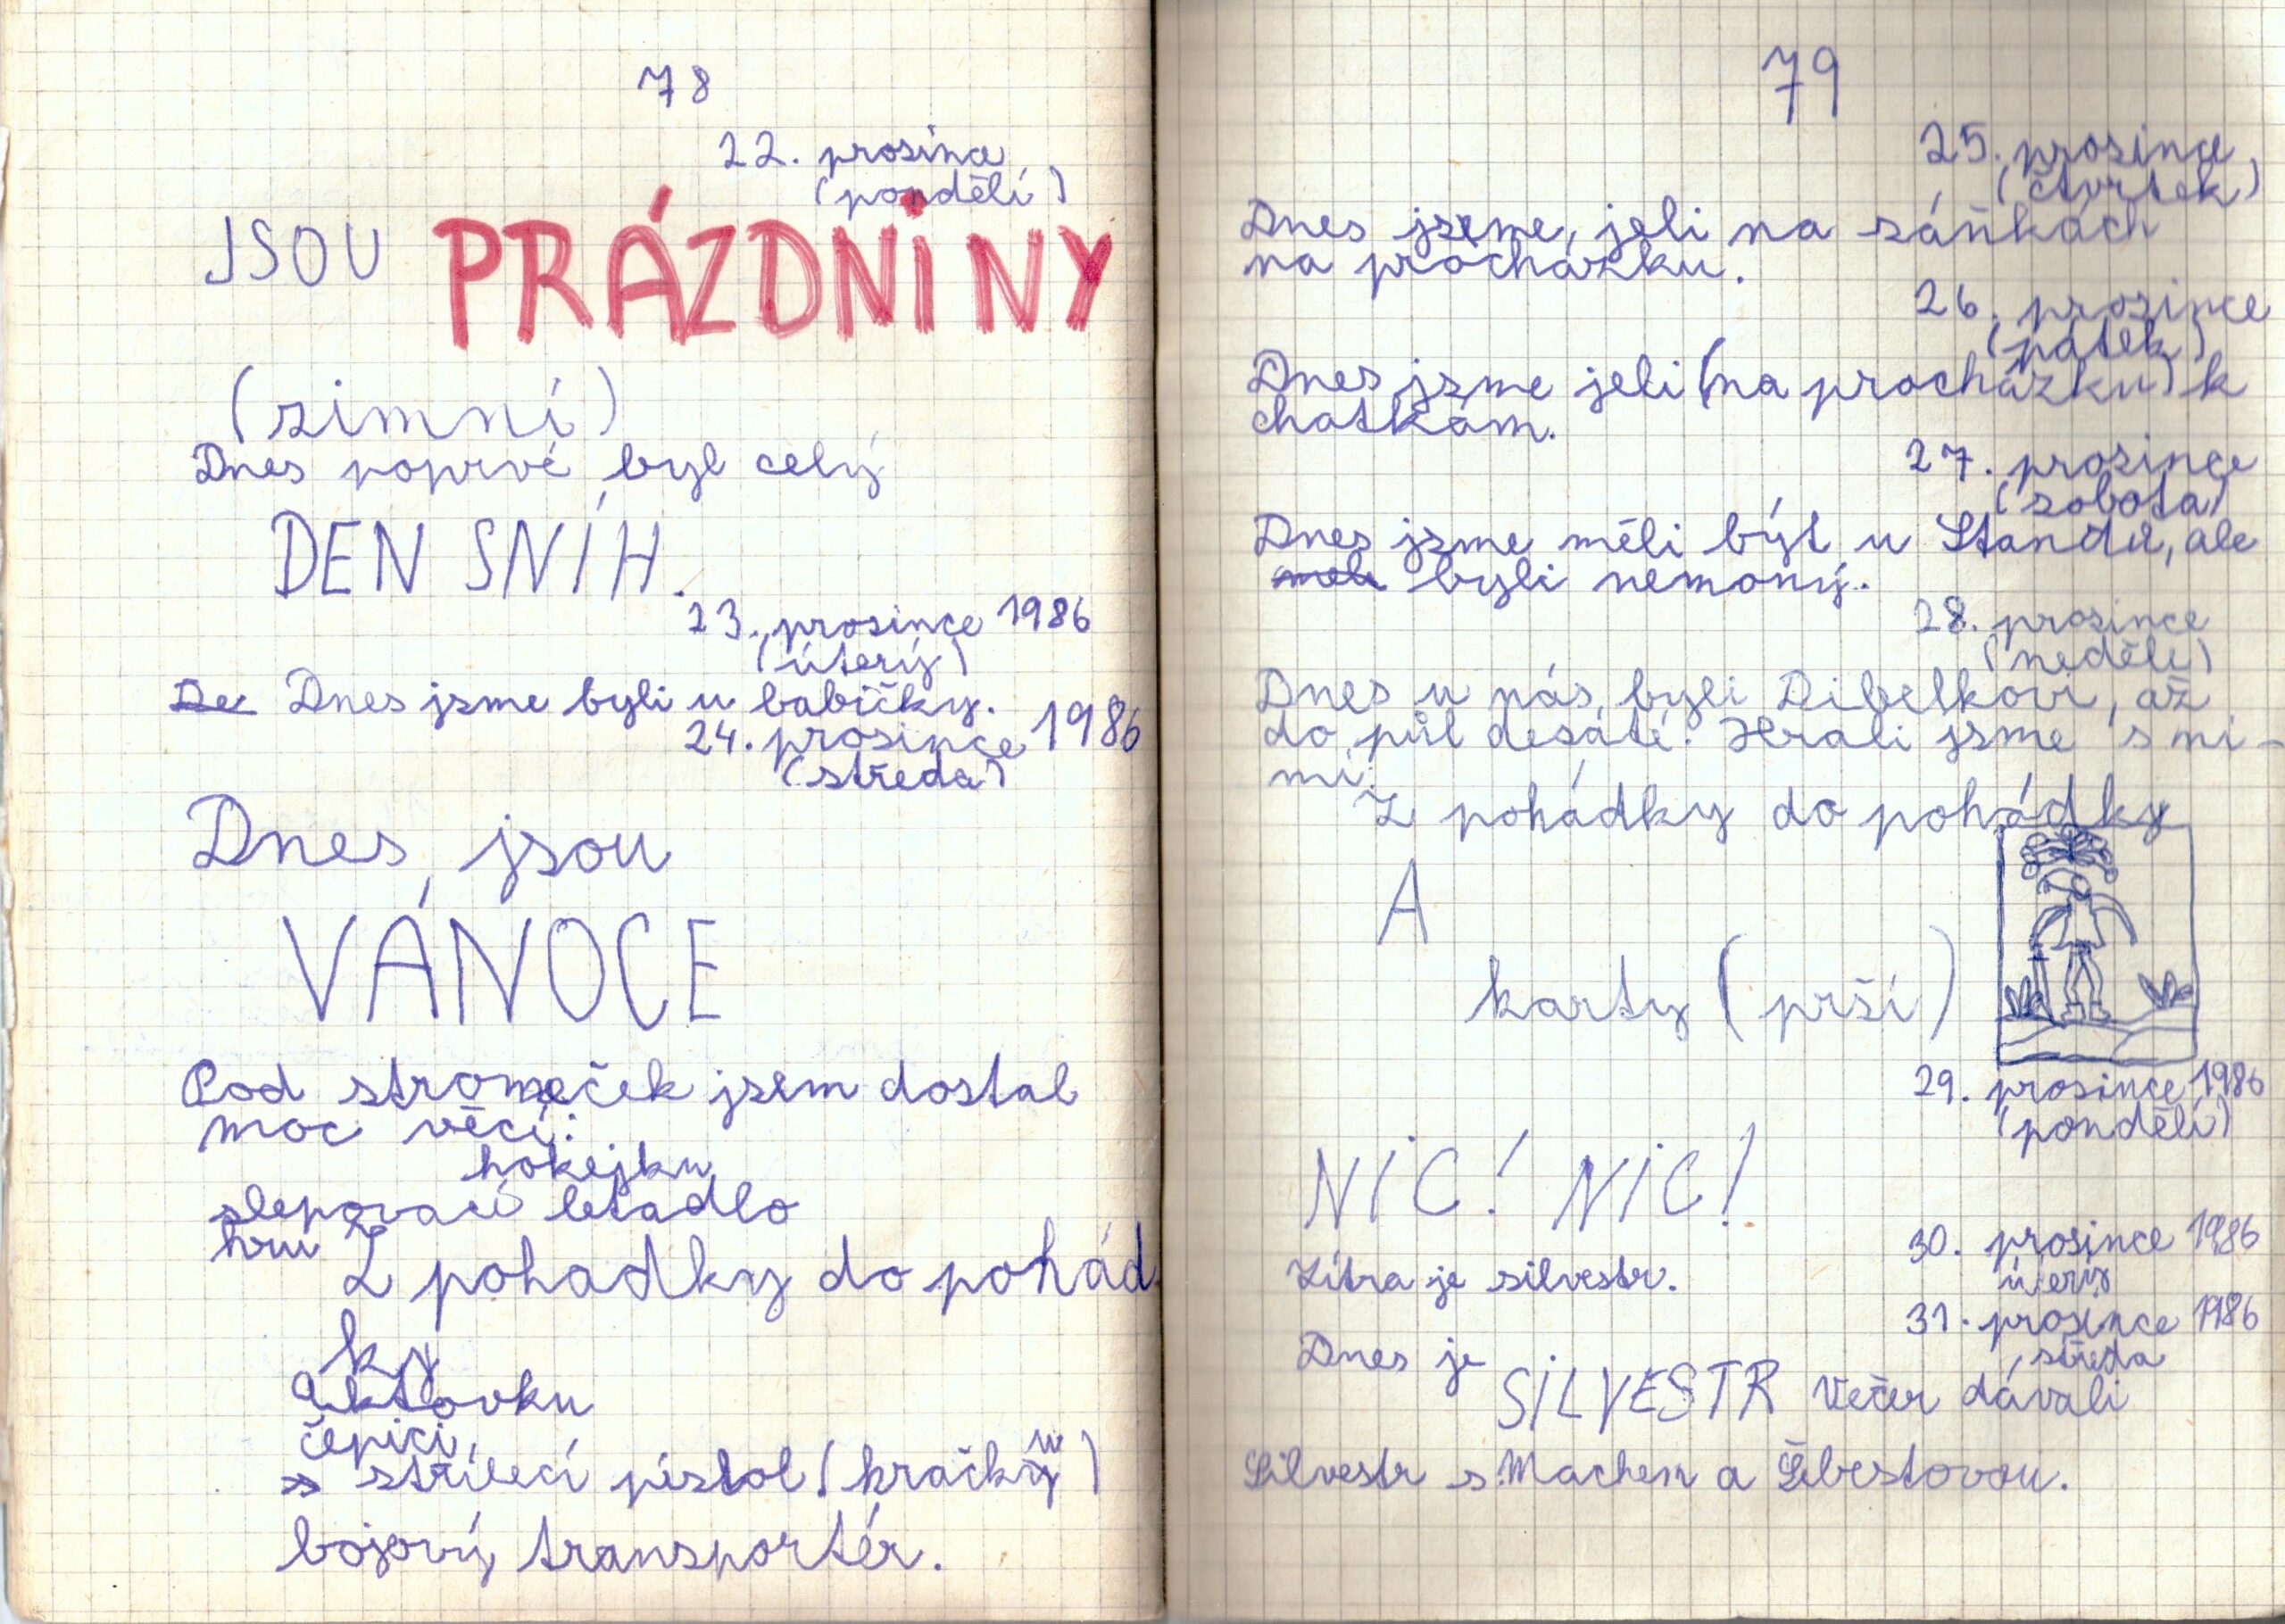 78
22. prosince
(pondělí)
JSOU PRÁZDNINY
(zimní)
Dnes poprvé byl celý
DEN SNÍH.
23. prosince 1986
(úterý)
De Dnes jsme byli u babičky.
24. prosince 1986
(středa)
Dnes jsou
VÁNOCE
Pod stromeček jsem dostal
moc věcí:
hokejku
slepovací letadlo
hru Z pohadky do pohád
ky
aktovku
čepici,
střílecí pistol (kračky)
bojový transportér.
79
25. prosince
(čtvrtek)
Dnes jsme jeli na sáňkách
na procházku.
26. prosince
(pátek)
Dnes jsme jeli (na procházku) k
chatkám.
27. prosince
(sobota)
Dnes jsme měli být u Standů, ale
meli byli nemoný.
28. prosince
(neděle)
Dnes u nás byli Dibelkovi, až
do půl desáté. Hrali jsme s ni-
mi:
Z pohádky do pohádky
A
karty (prší)
29. prosince 1986
(pondělí)
NIC! NIC!
30. prosince 1986
úterý
Zítra je silvestr.
31. prosince 1986
středa
Dnes je
SILVESTR Večer dávali
Silvestr s Machem a Šebestovou.